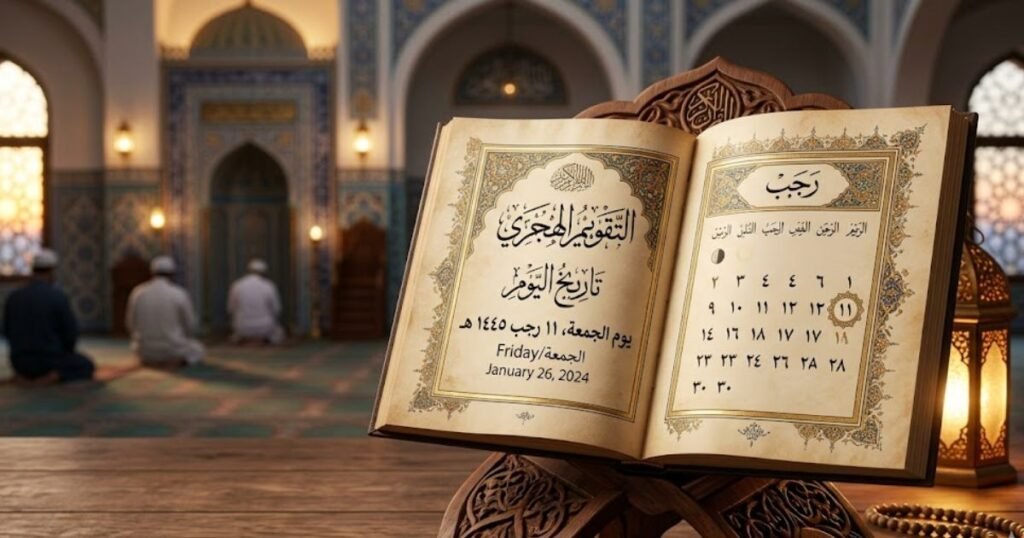 التَّقْوِيمُ الْهِجْرِي
تَارِيخُ الْيَوْمِ
يوم الجمعة، ١١ رجب ١٤٤٥ هـ
Friday/الجمعة
January 26, 2024
رَجَبْ
١ ٦ ٤ ٤ ٣ ٢
١١ ١٢ ١٢ ١١ ١٠ ٩
١٨ ١٧ ١٧ ١٨ ١٦ ١٤
٢٨ ٢٨ ٢٦ ٢٤ ٢٣ ٢٣
٣٠ ٣٠